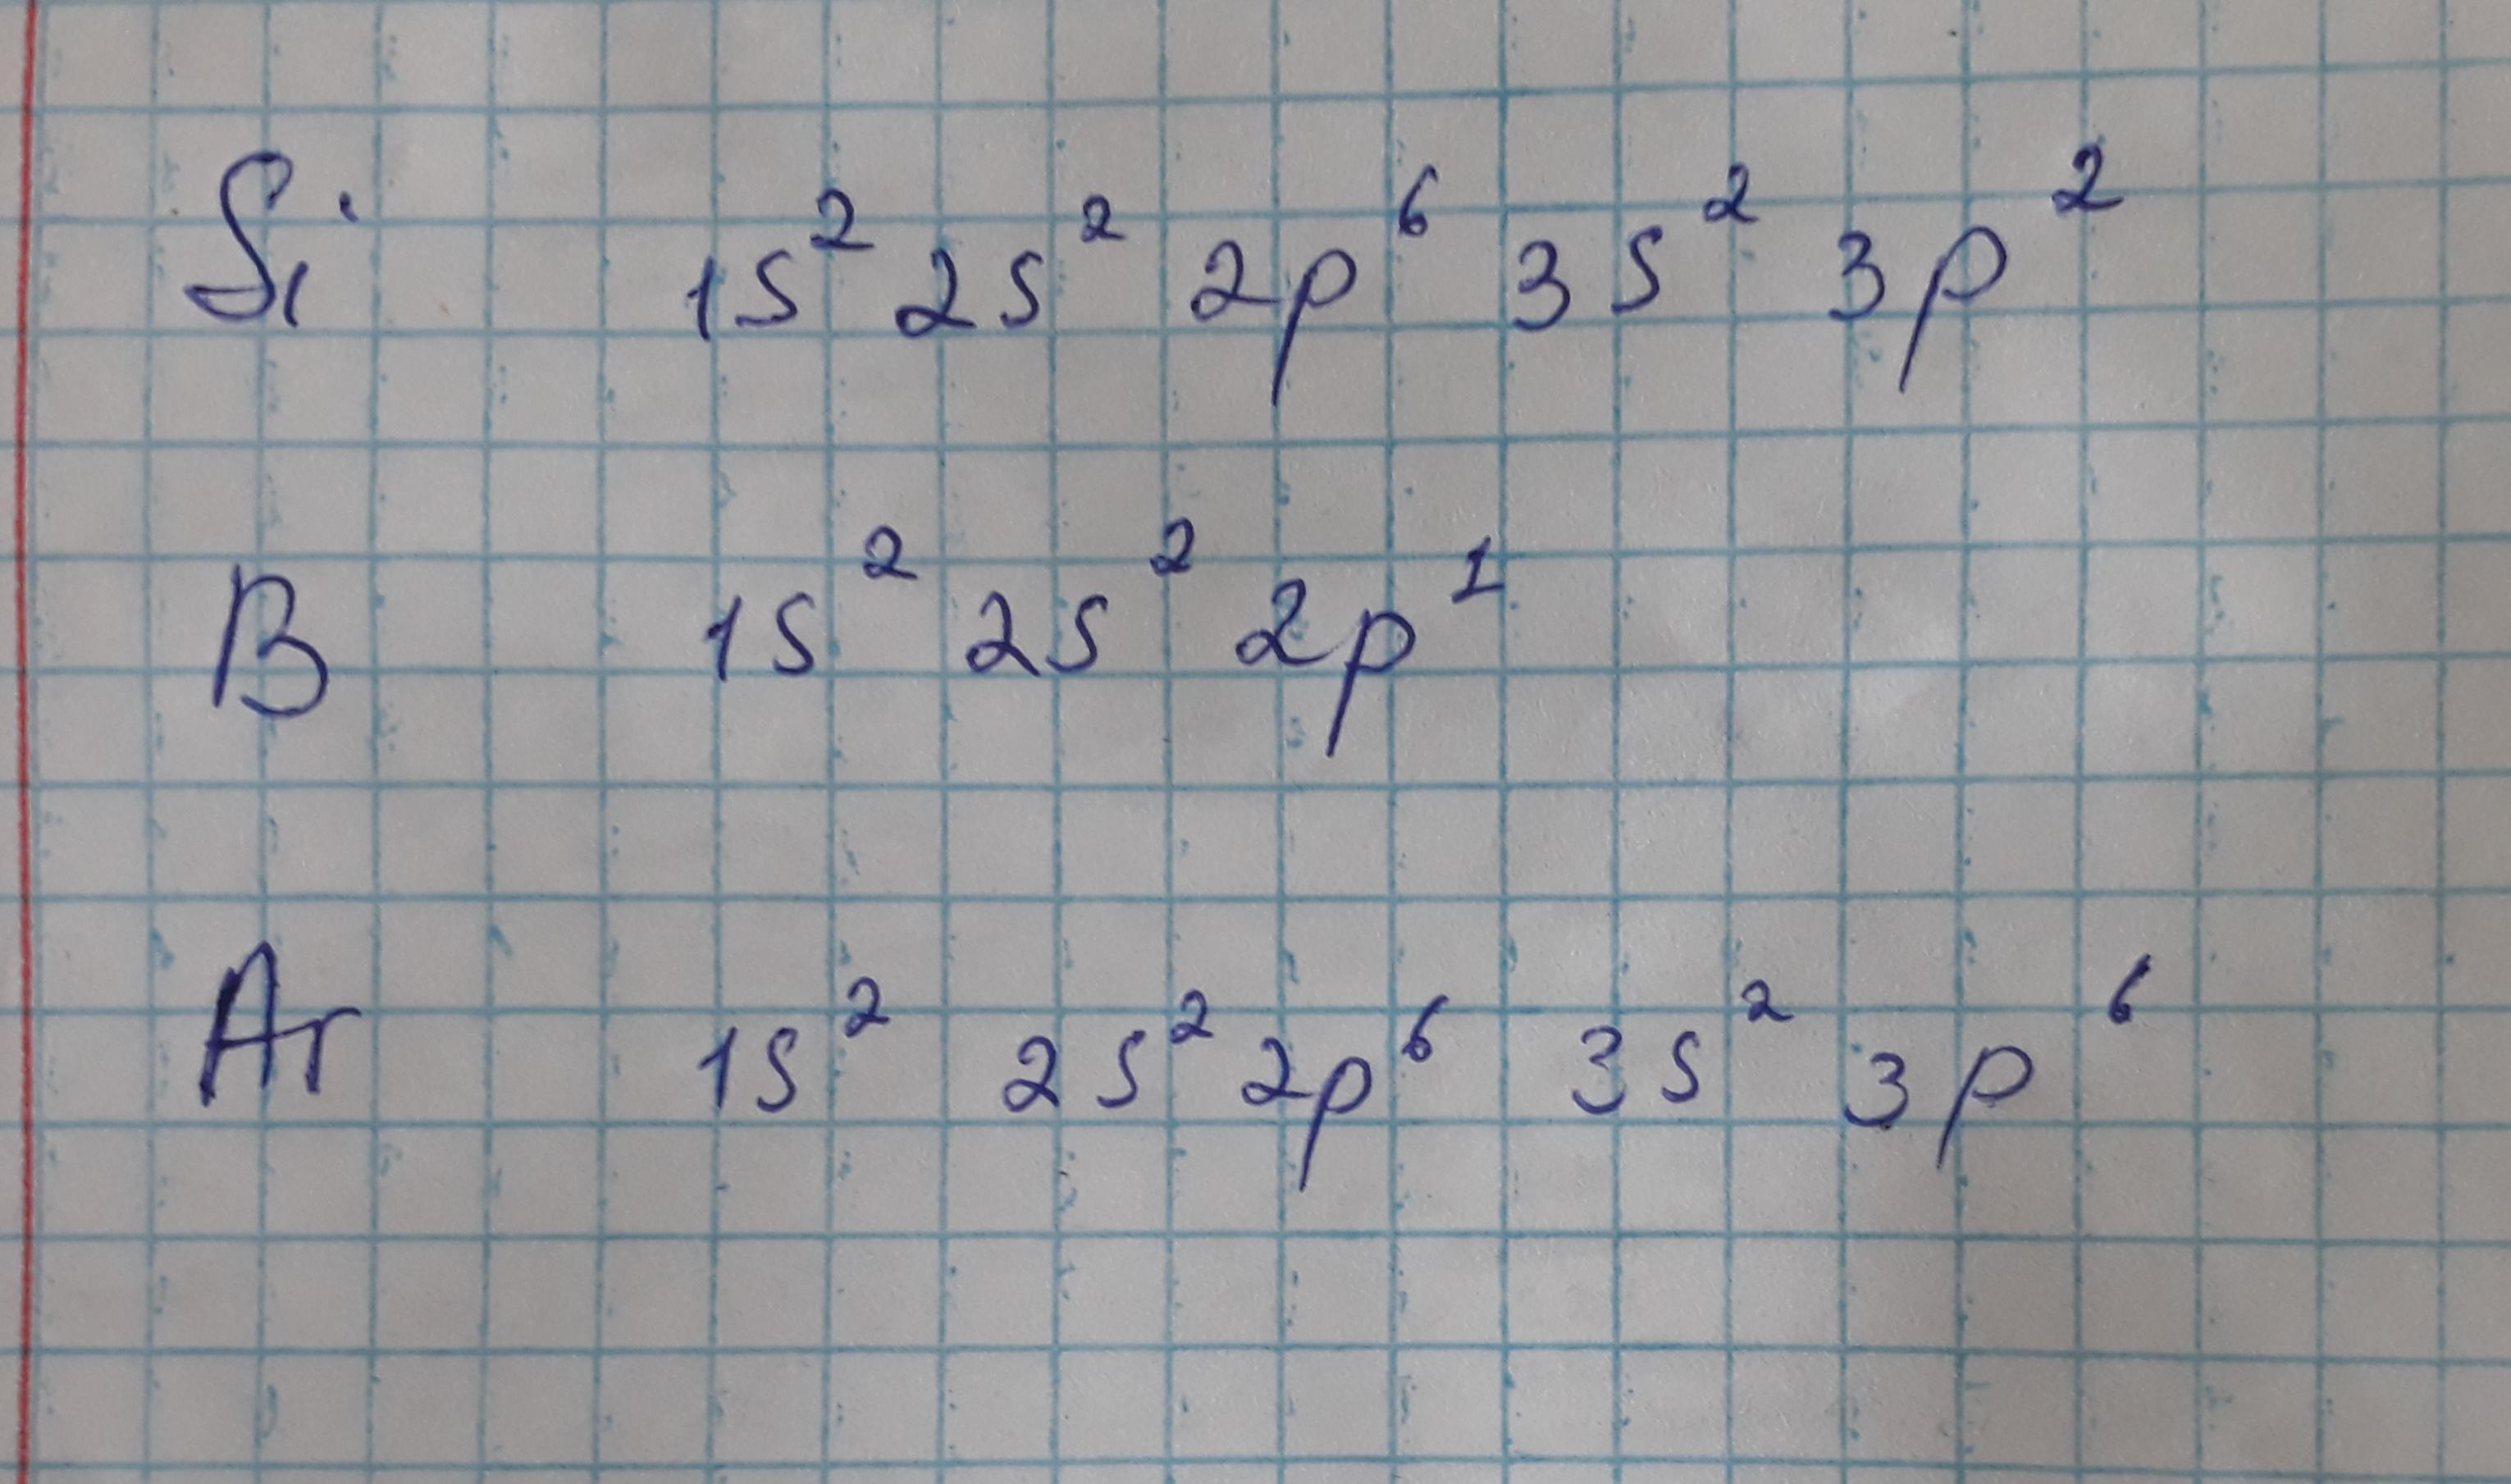 Si 1s² 2s² 2p⁶ 3s² 3p²
B 1s² 2s² 2p¹
Ar 1s² 2s² 2p⁶ 3s² 3p⁶